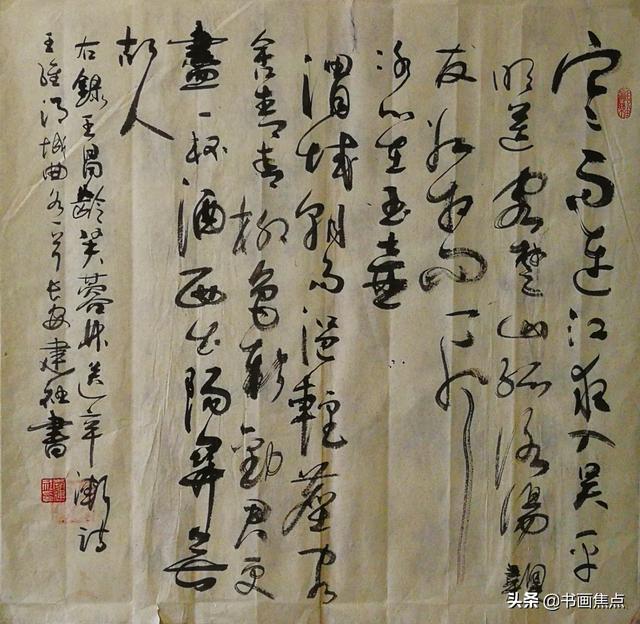 寒雨連江夜入吴平
明送客楚山孤洛陽親
友如相问一片
冰心在玉壶
渭城朝雨浥輕塵客
舍青青柳色新勸君更
盡一杯酒西出陽關無
故人
右錄王昌齡芙蓉楼送辛漸詩
王維渭城曲各一首长安建社書
头条 @书画焦点